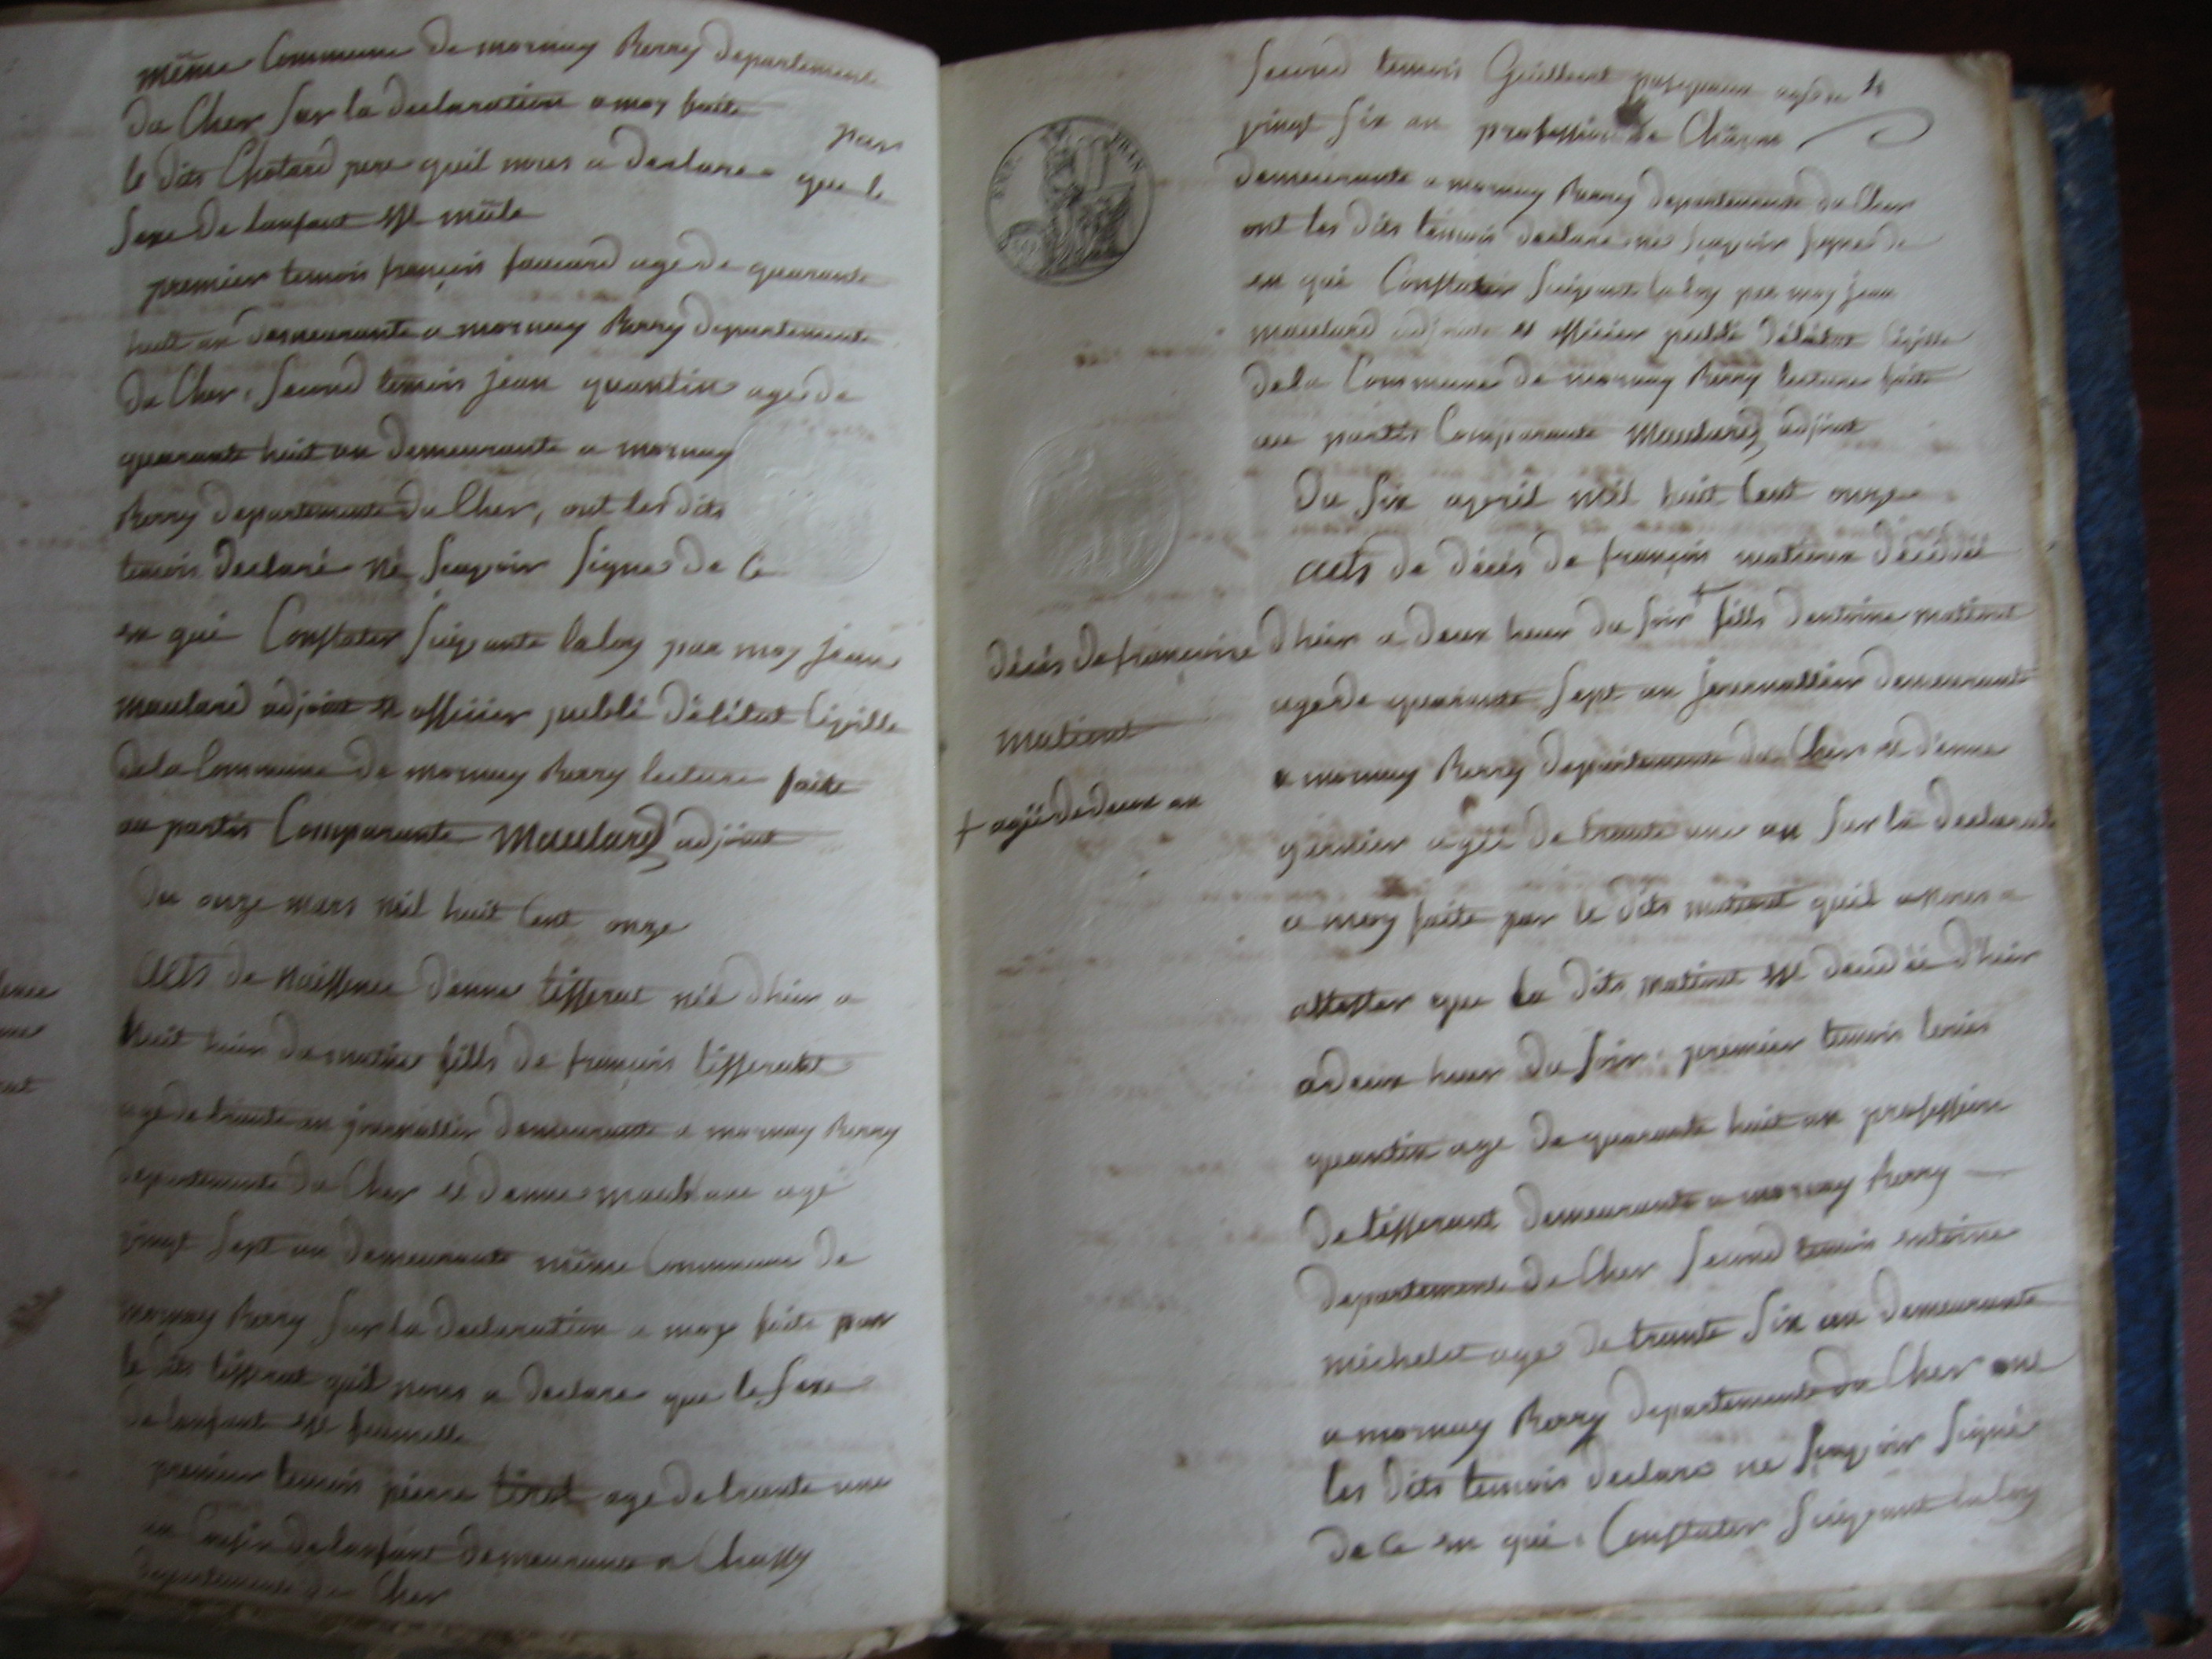 même Commune de mornay Berry departemente
du Cher sur la declaration a moy faite
par
le dits Chotard pere quil nous a declare que le
sexe de lanfant est mûle
premier temois françois foucard age de quarante
huit an demeurante a mornay Berry departemente
du Cher, second temois jean quantin age de
quarante huit an demeurante a mornay
Berry departemente du Cher, ont les dits
temois declaré né sçavoir signe de Ce
en qui Constater suivante la loy par moy jean
maulard adjoint et officier publi délétat Civille
de la Commune de mornay Berry lecture faite
au partis Comparante Maulard adjoint
du onze mars mil huit Cent onze
acts de naissence d'anne tisserat née dhier a
huit heur du matin fills de françois tisserat
age de trante an journallier demeurante a mornay Berry
departemente du Cher et danne age
vingt sept an demeurante même Commune de
mornay Berry sur la declaration a moy faite par
le dits tisserat quil nous a declare que le sexe
de lanfant est feumelle
premier temois pierre tirot age de trante une
an Cousin de lanfant demeurante a Chassy
departemente du Cher
second temois Guilleaut age de
vingt six an profession de Châron
demeurante a mornay Berry departemente du Cher
ont les dits temois declare né sçavoir signe de
en qui Constater suivant la loy par moy jean
maulard adjoint et officier publi délétat Civille
de la Commune de mornay Berry lecture faite
au partis Comparante Maulard adjoint
du six avril mil huit Cent onze
acts de décés de françois matinat décédéé
décés de françoise
matinat
+ agéé de deux an
d'hier a deux heur du soir + fills dantoine matinat
age de quarante sept an journallier demeurant
a mornay Berry departemente du Cher et d'anne
agéé de trante une an sur la declarate
a moy faite par le dits matinat quil a nous a
attester que la dits matinat est decedéé d'hier
a deux heur du soir, premier temois
quantin age de quarante huit an profession
de tisserant demeurante a mornay Berry
departemente de Cher second temois entoine
michelet age de trante six an demeurante
a mornay Berry departemente du Cher ont
les dits temois declare ne sçavoir signé
de Ce en qui, Constater suivant la loy